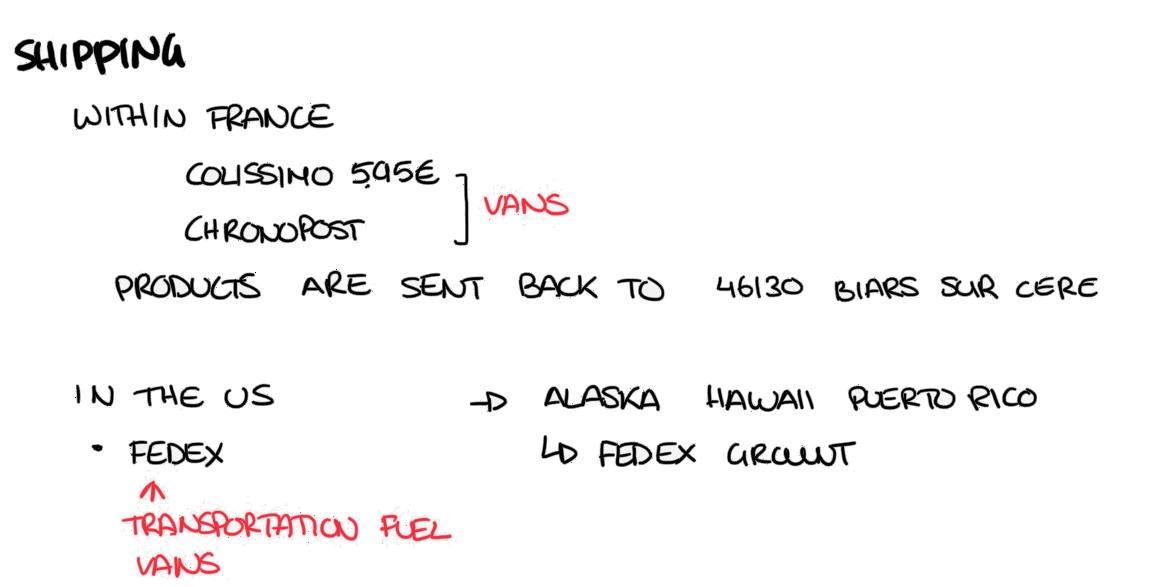 SHIPPING
WITHIN FRANCE
COLISSIMO 5,95€
CHRONOPOST
VANS
PRODUCTS ARE SENT BACK TO 46130 BIARS SUR CERE
IN THE US → ALASKA HAWAII PUERTO RICO
• FEDEX ↳ FEDEX
↑
TRANSPORTATION FUEL
VANS